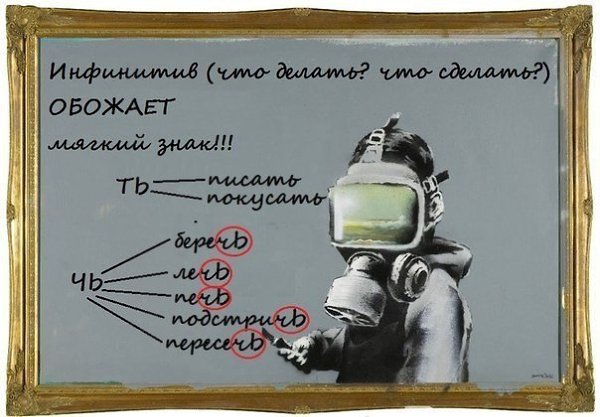 Инфинитив (что делать? что сделать?)
ОБОЖАЕТ
мягкий знак!!!
ТЬ
писать
покусать
ЧЬ
беречЬ
лечЬ
печЬ
подстричЬ
пересечЬ